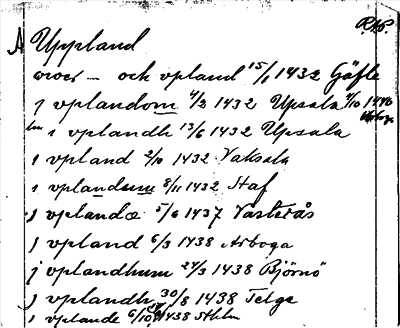 R.A.P.
Uppland
over – och vpland 15/1 1432 Gäfle
j vplandom 4/2 1432 Upsala 4/10 1446 Arboga
i vplandh 13/6 1432 Upsala
i vpland 2/10 1432 Vaksala
i vplandum 8/11 1432 Staf
j vplandæ 5/6 1437 Västerås
j vpland 6/3 1438 Arboga
j vplandhum 24/3 1438 Björnö
j vplandh 30/8 1438 Telge
i vplande 6/10 1438 Sthlm